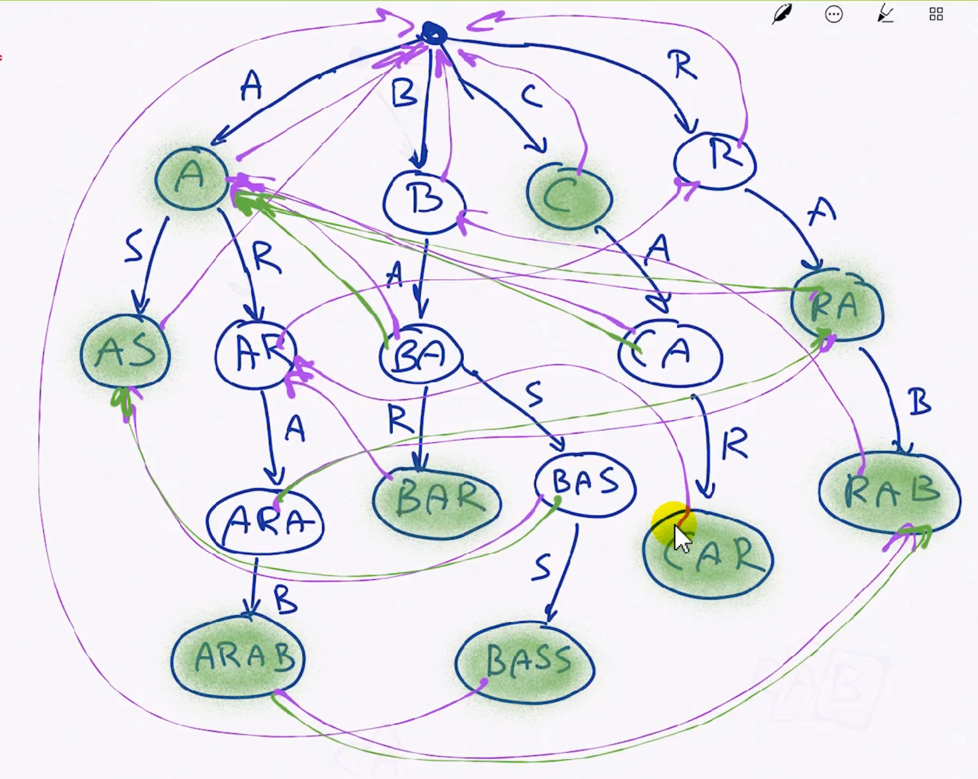 A
B
C
R
A
B
C
R
S
R
A
A
A
AS
AR
BA
CA
RA
A
R
S
R
B
ARA
BAR
BAS
CAR
RAB
B
S
ARAB
BASS